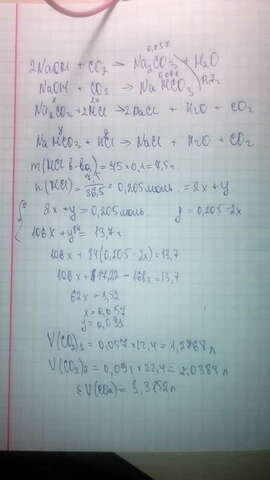 0,057
2NaOH + CO2 → Na2CO3 + H2O
0,091
NaOH + CO2 → NaHCO3
13,7г
x 2x
Na2CO3 + 2HCl → 2NaCl + H2O + CO2
y y
NaHCO3 + HCl → NaCl + H2O + CO2
m(HCl в-ва) = 75 × 0,1 = 7,5г
n(HCl) = 7,5/36,5 = 0,205 моль = 2x + y
2x + y = 0,205 моль y = 0,205 - 2x
106x + y84 = 13,7г
106x + 84(0,205 - 2x) = 13,7
106x + 17,22 - 168x = 13,7
62x = 3,52
x = 0,057
y = 0,091
V(CO2)1 = 0,057 × 22,4 = 1,2768 л
V(CO2)2 = 0,091 × 22,4 = 2,0384 л
ΣV(CO2) = 3,3152 л